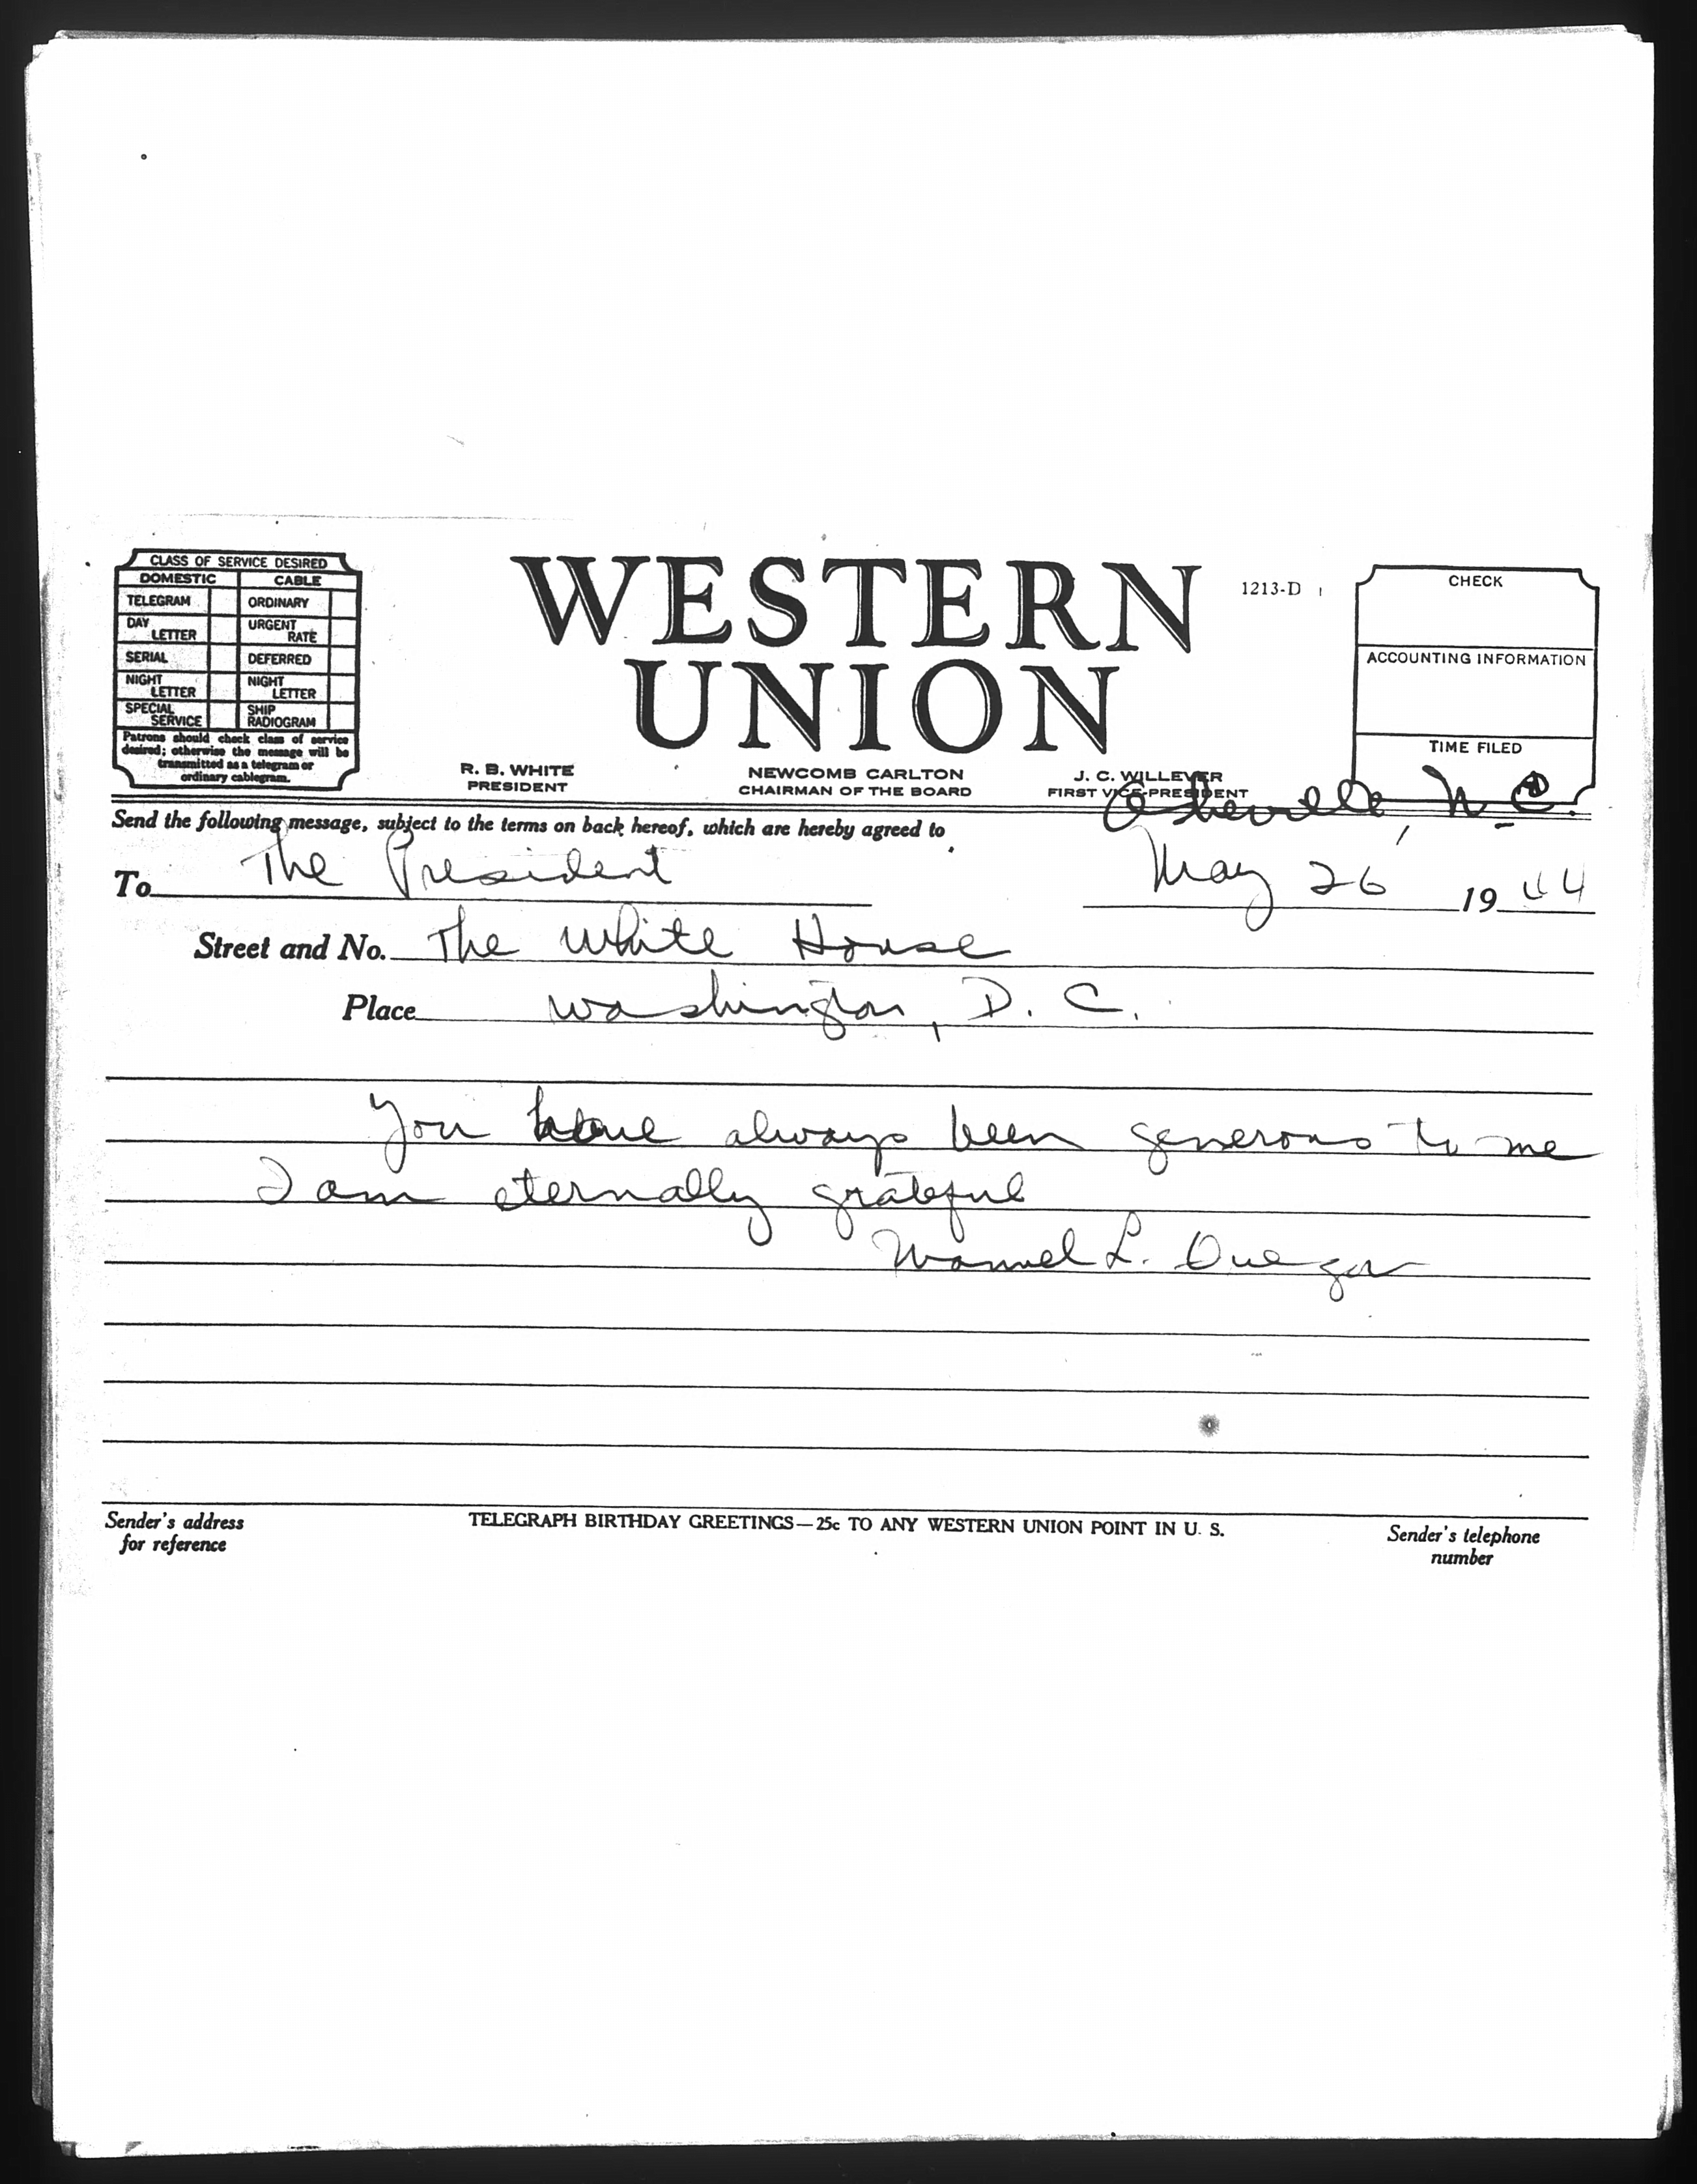 CLASS OF SERVICE DESIRED
DOMESTIC CABLE
TELEGRAM ORDINARY
DAY LETTER URGENT RATE
SERIAL DEFERRED
NIGHT LETTER NIGHT LETTER
SPECIAL SERVICE SHIP RADIOGRAM
Patrons should check class of service
desired; otherwise the message will be
transmitted as a telegram or
ordinary cablegram.
WESTERN
UNION
1213-D
CHECK
ACCOUNTING INFORMATION
TIME FILED
R. B. WHITE
PRESIDENT
NEWCOMB CARLTON
CHAIRMAN OF THE BOARD
J. C. WILLEVER
FIRST VICE-PRESIDENT
Asheville, N.C.
Send the following message, subject to the terms on back hereof, which are hereby agreed to
To The President
May 26 1944
Street and No. The White House
Place Washington, D. C.
You have always been generous to me
I am eternally grateful
Manuel L. Quezon
Sender's address
for reference
TELEGRAPH BIRTHDAY GREETINGS—25c TO ANY WESTERN UNION POINT IN U. S.
Sender's telephone
number